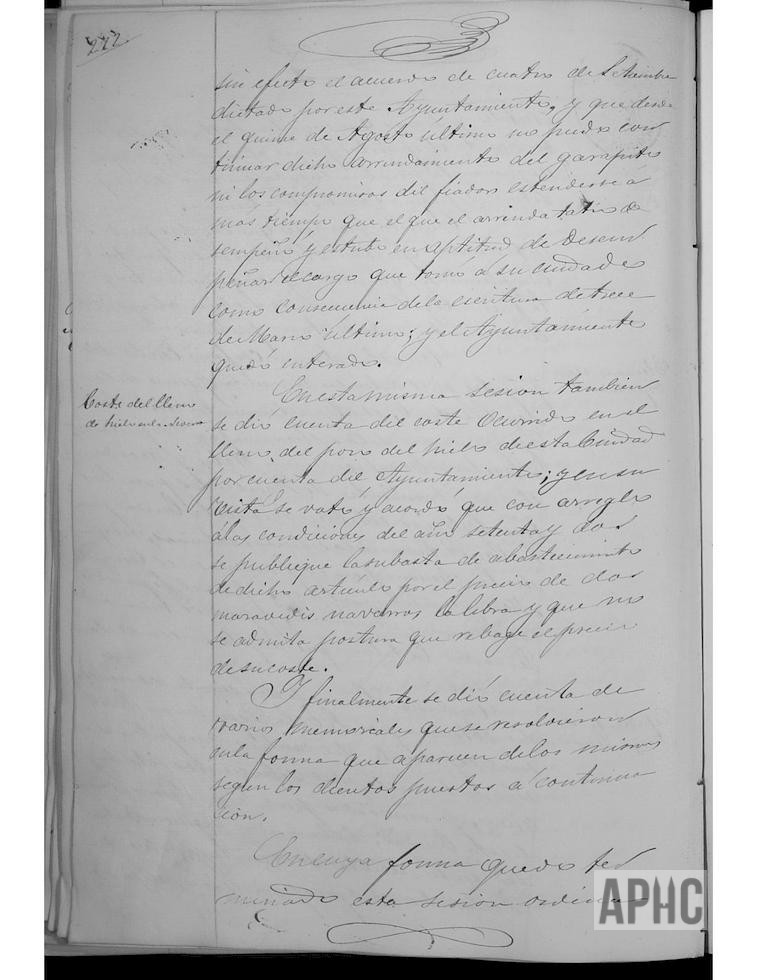 272
sin efecto el acuerdo de cuatro de Setiembre
dictado por este Ayuntamiento, y que desde
el quince de Agosto último no pudo con
tinuar dicho arrendamiento del garapito
ni los compromisos del fiador estenderse á
más tiempo que el que el arrendatario de
sempeñó y estubo en aptitud de desem
peñar el cargo que tomó a su cuidado
como consecuencia de la escritura de trece
de Marzo último; y el Ayuntamiento
quedó enterado.
Coste del lleno
de hielo en la
En esta misma sesion tambien
se dió cuenta del coste ocurrido en el
lleno del pozo del hielo de esta Ciudad
por cuenta del Ayuntamiento; y en su
vista se votó y acordó que con arreglo
á las condiciones del año setenta y dos
se publique la subasta de abastecimiento
de dicho artículo por el precio de dos
maravedis navarros la libra y que no
se admita postura que rebage el precio
de su coste.
Y finalmente se dió cuenta de
varios memoriales que se resolvieron
en la forma que aparecen de los mismos
segun los puestos á continua
cion.
En cuya forma quedó ter
minada esta sesion ordina
APHC